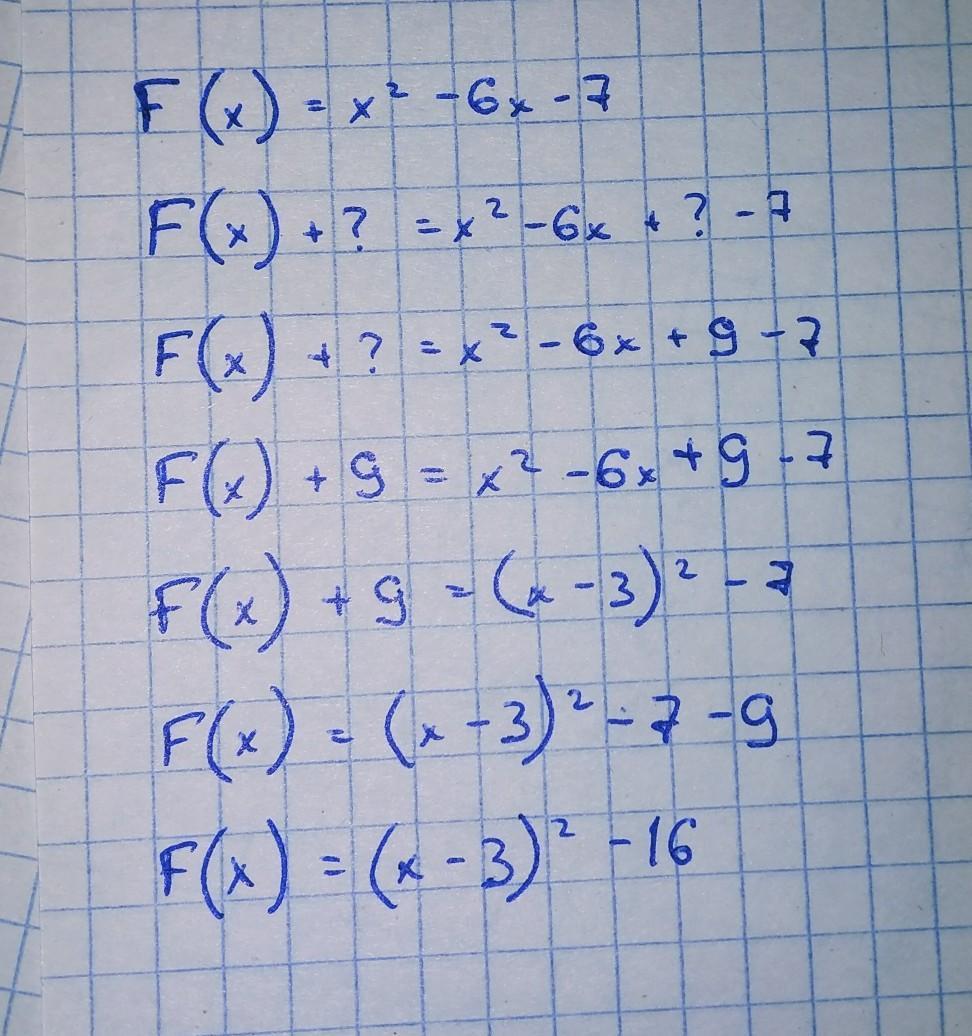 F(x) = x² - 6x - 7
F(x) + ? = x² - 6x + ? - 7
F(x) + ? = x² - 6x + 9 - 7
F(x) + 9 = x² - 6x + 9 - 7
F(x) + 9 = (x - 3)² - 7
F(x) = (x - 3)² - 7 - 9
F(x) = (x - 3)² - 16